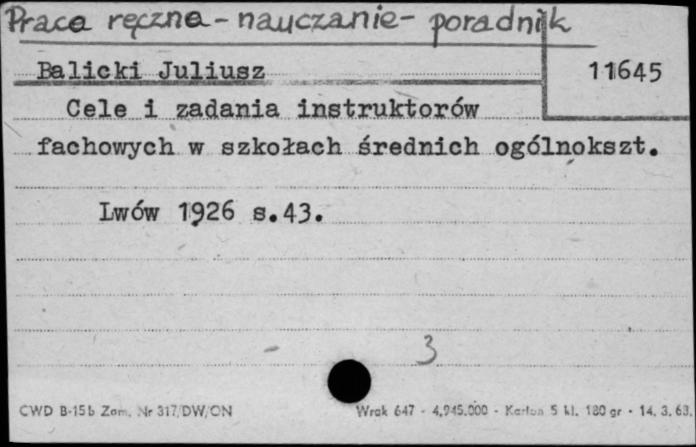 Praca ręczna - nauczanie - poradnik
Balicki Juliusz
11645
Cele i zadania instruktorów
fachowych w szkołach średnich ogólnokszt.
Lwów 1926 s.43.
3
CWD B-15b Zam. Nr 317/DW/ON
Wrak 647 - 4,945.000 - Karton 5 kl. 180 gr - 14. 3. 63.